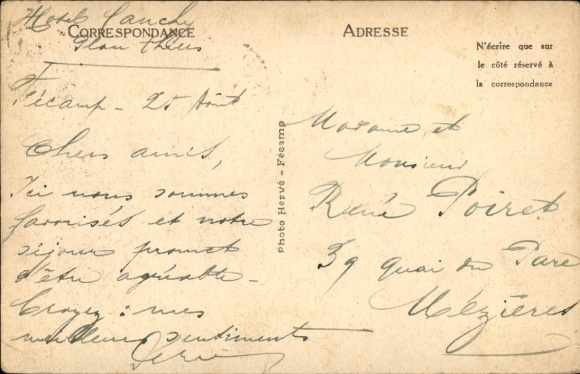 Hotel Canchy
CORRESPONDANCE
Fécamp - 25 Août
Chers amis,
Ici nous sommes
favorisés et notre
séjour promet
d'être agréable -
Croyez : mes
meilleurs sentiments
Photo Hervé - Fécamp
ADRESSE
N'écrire que sur
le côté réservé à
la correspondance
Madame et
Monsieur
René Poiret
39 quai du Parc
Mézières